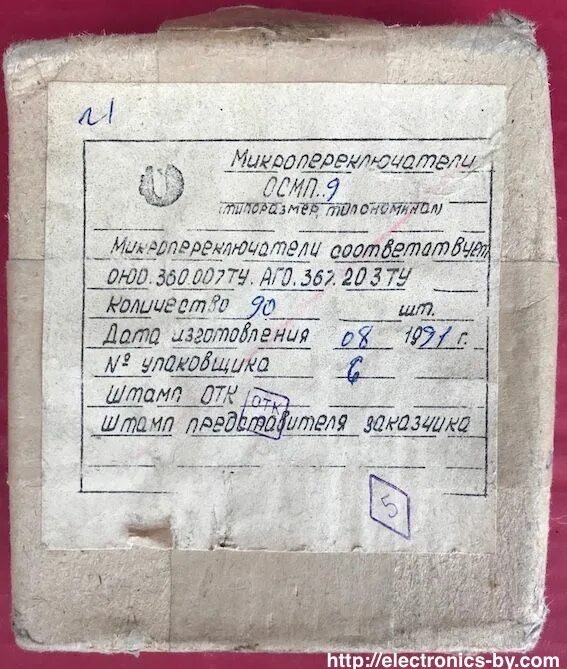 л1
Микропереключатели
ОСМП.9
(типоразмер, типономинал)
Микропереключатели соответатвует
ОЮО.360.007ТУ. АГО.367.203ТУ
Количество 90 шт.
Дата изготовления 08 1991 г.
№ упаковщика 6
Штамп ОТК
ОТК
Штамп предотавителя заказчика
5
http://electronics-by.com